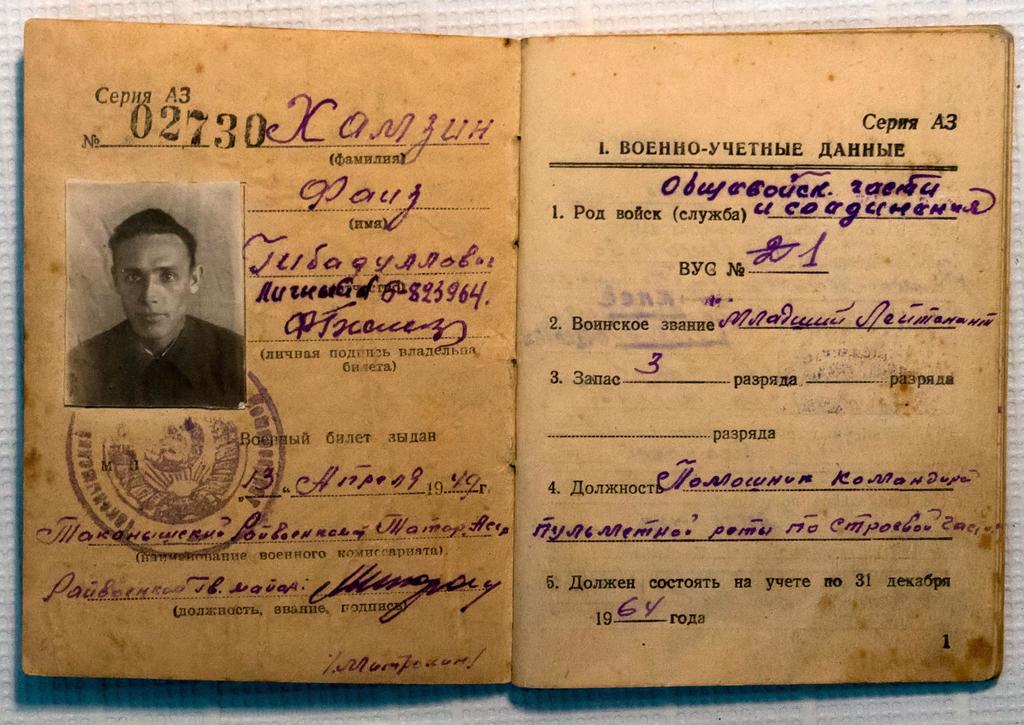 Серия АЗ
№ 02730 Хамзин
(фамилия)
Фаиз
(имя)
Гибадуллович
Личный № Б-823964.
(отчество)
(личная подпись владельца
билета)
Военный билет выдан
М П
"13" Апреля 1949 г.
Таканышский Райвоенкомат Татар. Асср
(наименование военного комиссариата)
Райвоенком гв. майор:
(должность, звание, подпись)
/Митрохин/
Серия АЗ
I. ВОЕННО-УЧЕТНЫЕ ДАННЫЕ
Общевойск. части
1. Род войск (служба) и соединения
ВУС № 1
2. Воинское звание Младший Лейтенант
3. Запас 3 разряда разряда
разряда
4. Должность Помошник командира
пульметной роты по строевой части
5. Должен состоять на учете по 31 декабря
1964 года
1